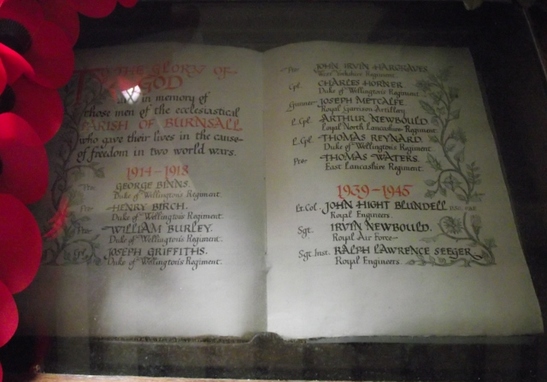 TO THE GLORY OF
GOD
and in memory of
those men of the ecclesiastical
PARISH OF BURNSALL
who gave their lives in the cause
of freedom in two world wars.
1914-1918
Pte. GEORGE BINNS.
Duke of Wellington's Regiment.
Pte. HENRY BIRCH.
Duke of Wellington's Regiment.
Pte. WILLIAM BURLEY.
Duke of Wellington's Regiment.
Cpl. JOSEPH GRIFFITHS.
Duke of Wellington's Regiment.
Pte. JOHN IRVIN HARGRAVES
West Yorkshire Regiment.
Cpl. CHARLES HORNER
Duke of Wellington's Regiment
Gunner JOSEPH METCALFE
Royal Garrison Artillery
L.Cpl. ARTHUR NEWBOULD.
Loyal North Lancashire Regiment
L.Cpl. THOMAS REYNARD.
Duke of Wellington's Regiment
Pte. THOMAS WATERS.
East Lancashire Regiment.
1939-1945
Lt. Col. JOHN HIGHT BLUNDELL
Royal Engineers
Sgt. IRVIN NEWBOULD.
Royal Air Force
Sgt. Inst. RALPH LAWRENCE SEEGER
Royal Engineers